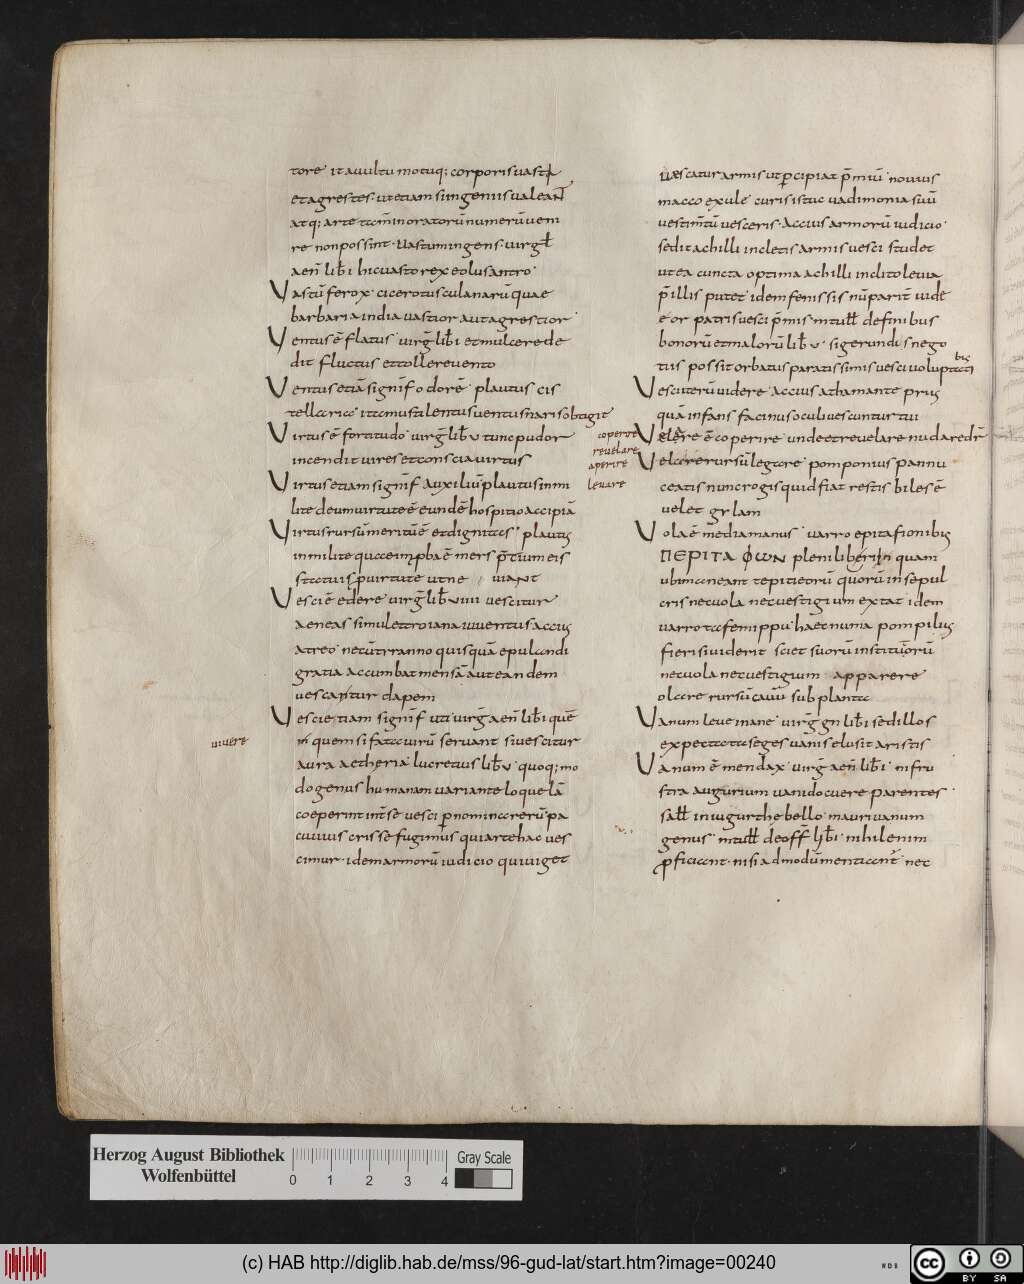 tore ita uultu motuq; corporis uasti
et agrestes · ut etiam si ingeniis ualeant
atq; arte tam̄ in oratorū numerū ueni
re non possint · Uastum ingens · uirgł
aen̄ lib̄ i hic uasto rex eolus antro ·
Vastū ferox · cicero tusculanarū quae
barbaria india uastior aut agrestior ·
Ventus ē flatus uirḡ lib̄ i et mulcere de
dit fluctus et tollere uento
Ventus etiā signif̄ odorē plautus cis
tellaria
Virtus ē fortitudo uirḡ lib̄ v tunc pudor
incendit uires et conscia uirtus
Virtus etiam signif̄ auxiliū plautus in mi
lite deum uirtute ē eundē hospitio accipiā
Virtus rursū meritū ē et dignitas · plautus
in milite quae
status p uirtute ut ne uiant
Vesci ē edere uirḡ lib̄ viii uescitur
aeneas simul et troiana iuuentus accius
atreo ne cū tyranno quisquā epulandi
gratia accumbat mensā aut eandem
uescantur dapem
Vesci etiam signif̄ uti uirḡ aen̄ lib̄ i quē
uiuere
quem si fata uirū seruant si uescitur
aura aetheria lucretius lib̄ v · quoq; mo
do genus humanam uariante loquelā
coeperint int̄ se uesci p nomina rerū pa
cuuius crisse fugimus qui arte hac ues
cimur · idem armorū iudicio qui uiget
uescatur armis ut percipiat p̄miū nouius
macco exule curis istuc uadimonia suū
uestim̄tū uesceris · Accius armorū iudicio ·
sed ita achilli incletis armis uesci studet
ut ea cuncta optima achilli inclito leuia
p̄ illis putet idem fenissis nū
eor patris uesci p̄mis · m tull̄ de finibus
bonorū et malorū lib̄ v · si gerundis nego
tiis possit orbatus paratissimis uesci uoluptati
bus
Vesci uerū uidere Accius athamante prius
quā infans facinus oculi uescuntur tui
coperire
reuelare
aperire
leuare
Velare ē coperire unde et reuelare nudare dr̄
Velare rursū legare · pomponius pannu
ceatis num rogis quid fiat restis bilesē
uelet gylam
Vola ē media manus uarro epitafionibus
ΠΕΡΙΤΑΦΩΝ pleni libri in quam
ubi maneant tepitietrū quorū in sepul
cris nec uola nec uestigium extat idem
uarro tafemippu · haec numa pompilius
fieri si uiderit sciet suorū institutorū
nec uola nec uestigium apparere
olare rursū cauū sub planta
Vanum leue inane uirḡ gn̄ lib̄ i sed illos
expectata seges uanis elusit aristis
Vanum ē mendax uirḡ aen̄ lib̄ i ni fru
stra augurium uani docuere parentes
sall̄ in iugurthe bello mauri uanum
genus m tull̄ de off̄ lib̄ i nihil enim
proficiant · nisi admodū mentiant̄ nec
Herzog August Bibliothek
Wolfenbüttel
0 1 2 3 4
Gray Scale
(c) HAB http://diglib.hab.de/mss/96-gud-lat/start.htm?image=00240
WDB
cc BY SA